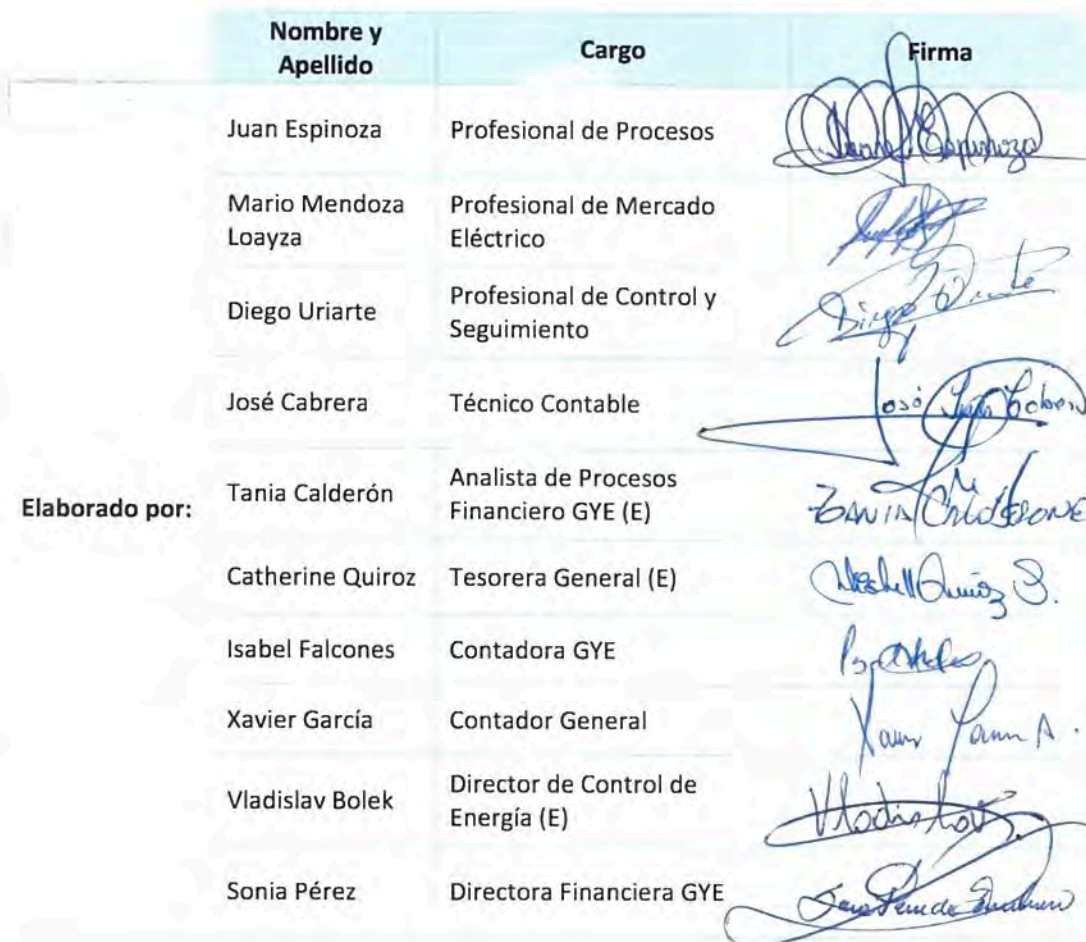 Nombre y
Apellido
Cargo
Firma
Juan Espinoza
Profesional de Procesos
Juan Espinoza
Mario Mendoza
Loayza
Profesional de Mercado
Eléctrico
Diego Uriarte
Profesional de Control y
Seguimiento
Diego
José Cabrera
Técnico Contable
José
Elaborado por:
Tania Calderón
Analista de Procesos
Financiero GYE (E)
Catherine Quiroz
Tesorera General (E)
Isabel Falcones
Contadora GYE
Xavier García
Contador General
Vladislav Bolek
Director de Control de
Energía (E)
Vladislav
Sonia Pérez
Directora Financiera GYE